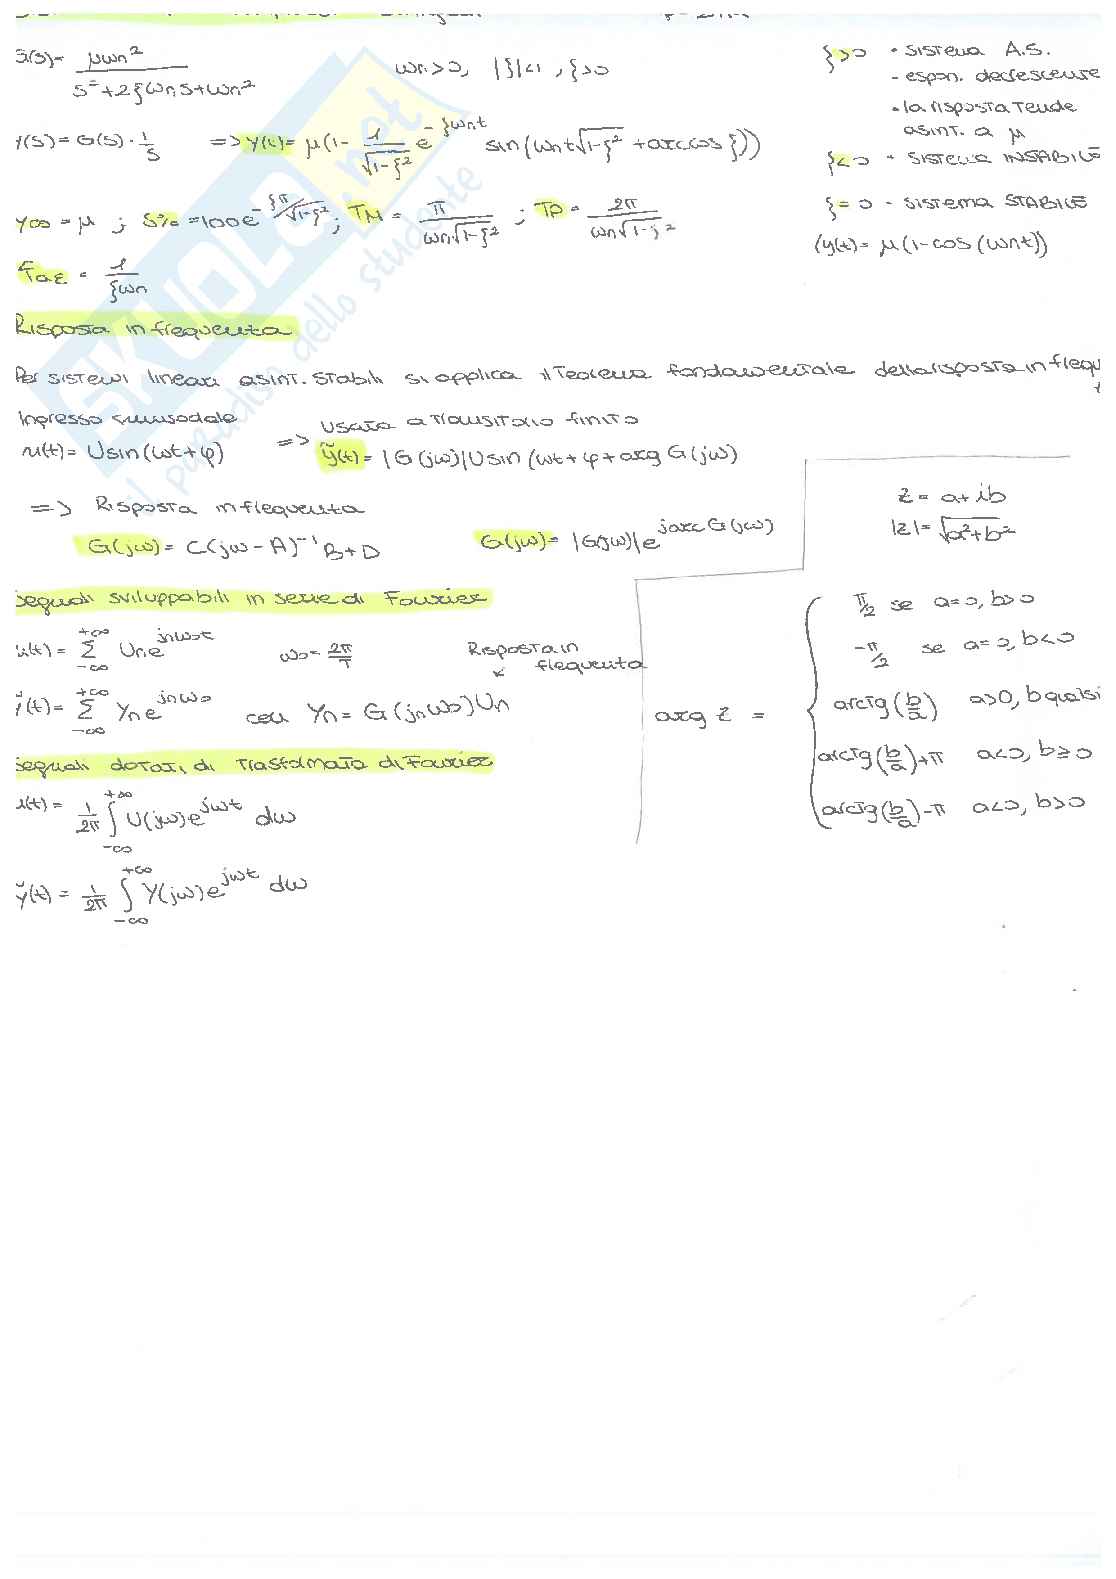 G(s)= μωn² / s²+2ξωns+ωn²   ωn>0, |ξ|<1, ξ>0
Y(s)=G(s)·1/s => y(t)= μ(1- 1/√1-ξ² e^-ξωnt sin(ωnt√1-ξ² + arccos ξ))
y∞ = μ ; S% =100e^-ξπ/√1-ξ² ; TM = π/ωn√1-ξ² ; TP = 2π/ωn√1-ξ²
= 1/ξωn
ξ>0 • sistema A.S.
- espon. decrescente
• la risposta tende
asint. a μ
ξ<0 • sistema INSABILE
ξ=0 - sistema STABILE
(y(t)= μ(1-cos(ωnt))
Risposta in frequenza
Per sistemi lineari asint. stabili si applica il Teorema fondamentale della risposta in frequ
Ingresso sinusoidale => Usata a transitorio finito
u(t)= Usin(ωt+φ)   ỹ(t)= |G(jω)|Usin(ωt+φ+arg G(jω)
=> Risposta in frequenza
G(jω)= C(jω-A)⁻¹B+D   G(jω)= |G(jω)|e^jarg G(jω)
z = a+ib
|z|= √a²+b²
segnali sviluppabili in serie di Fourier
u(t)= Σ +∞ -∞ Un e^jnω0t   ω0= 2π/T   Risposta in
frequenza
ỹ(t)= Σ +∞ -∞ Yn e^jnω0   con Yn= G(jnω0)Un
arg z =
π/2 se a=0, b>0
-π/2 se a=0, b<0
arctg(b/a) a>0, b qualsi
arctg(b/a)+π a<0, b≥0
arctg(b/a)-π a<0, b>0
segnali dotati di trasformata di Fourier
u(t)= 1/2π ∫ +∞ -∞ U(jω)e^jωt dω
ỹ(t)= 1/2π ∫ +∞ -∞ Y(jω)e^jωt dω
SKUOLA.net
il paradiso dello studente